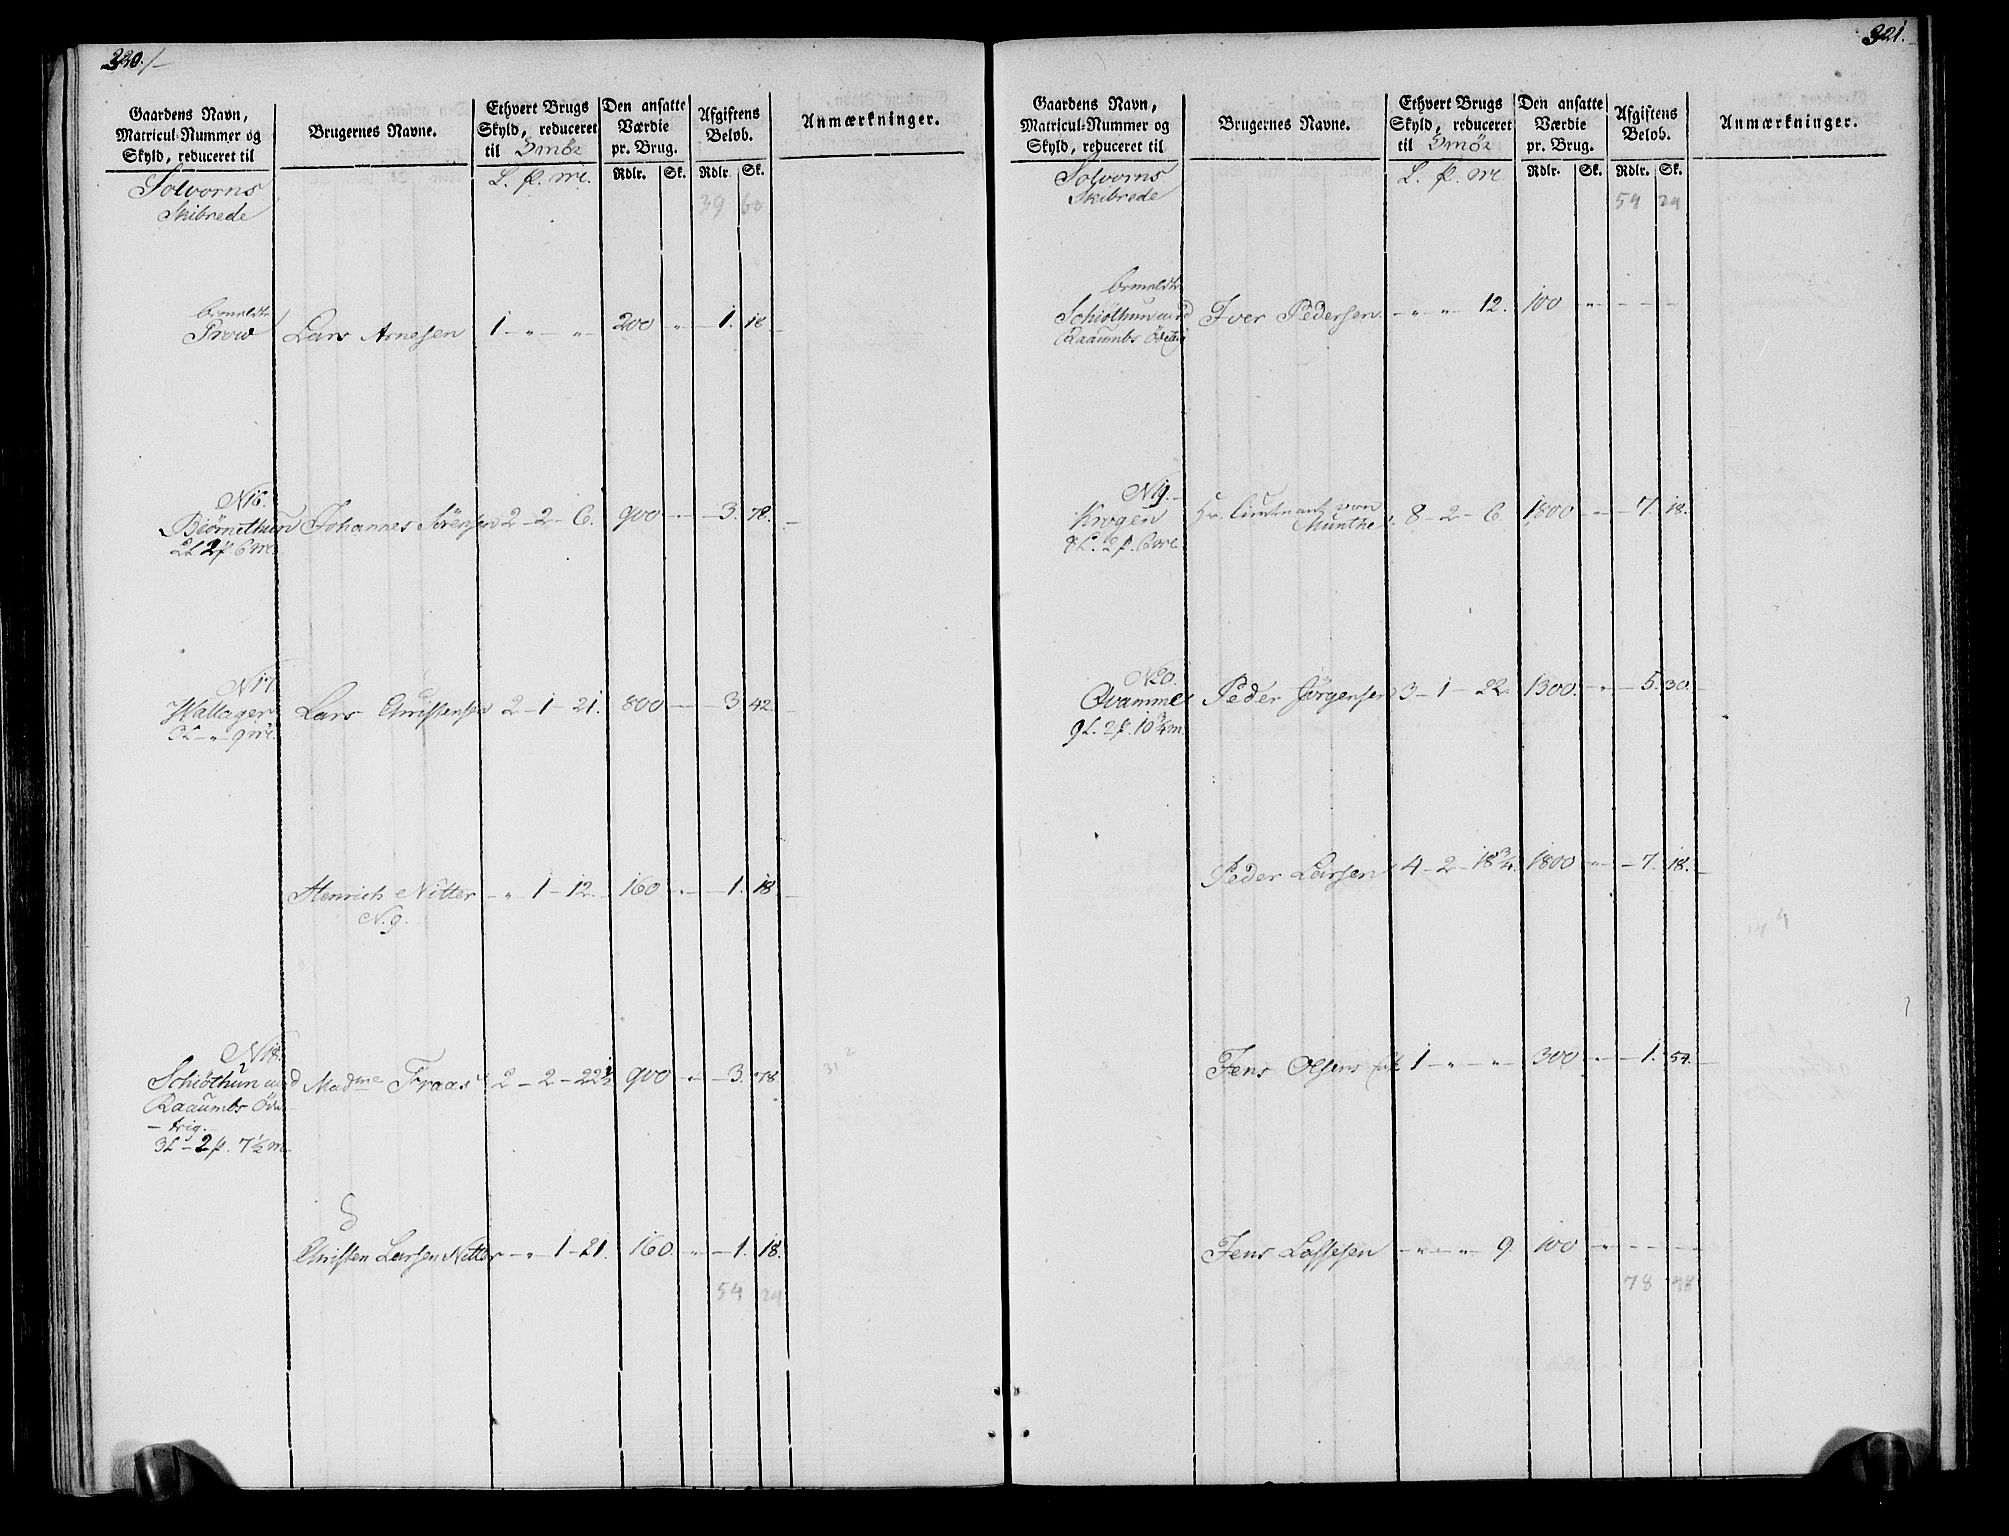 320./-
Gaardens Navn, Matricul-Nummer og Skyld, reduceret til
Brugernes Navne.
Ethvert Brugs Skyld, reduceret til Smør
Den ansatte Værdie pr. Brug.
Afgiftens Beløb.
Anmærkninger.
L. p. mr. Rdlr. Sk. Rdlr. Sk.
Solvorns
Skibrede
39 60
Ormeldte
Prow Lars Arnesen 1 - " - " 200 " - 1. 18
N 16.
Biørnethun Johannes Sørensen 2 - 2 - 6. 900 - - 3. 78. -
2L 2p 6 mr.
N 17.
Wallager Lars Christensen 2 - 1 - 21. 800 - - 3 42. -
3L - " - 9 mr.
Henrich Nitter - " 1 - 12. - 160 " - 1. 18 -
N. 9.
N 18.
Schiøthun med Madme Fraas 2 - 2 - 22½ 900 " - 3. 78
Raaumbs Øde-
- trig.
3L - 2p. 7½ m.
31 2
Christen Larsen Nitter - " 1 - 21. 160. " - 1. 18.
54 24
321.
Gaardens Navn, Matricul-Nummer og Skyld, reduceret til
Brugernes Navne.
Ethvert Brugs Skyld, reduceret til Smør
Den ansatte Værdie pr. Brug.
Afgiftens Beløb.
Anmærkninger.
L. p. mr. Rdlr. Sk. Rdlr. Sk.
Solvorns
Skibrede
54 24
Ormeldte
Schiøthun med Iver Pedersen - " - " 12. 100 " - - - -
Raaumbs
N 19.
Krogen Hr. Lieutnant von
Munthe 8 - 2 - 6. 1800 - " - 7. 18.
8L. 2p. 6 mr.
N 20.
Qvamme Peder Jørgensen 3 - 1 - 22. 1300 - " - 5. 30.
9L. 2p. 10¾ m.
Peder Larsen 4 - 2 - 18¾ 1800 - " - 7. 18.
4
Jens Olsens 1 - " - " 300 " - 1. 54. -
Jens Lassesen - " - " - 9. 100 " - - - -
78 48